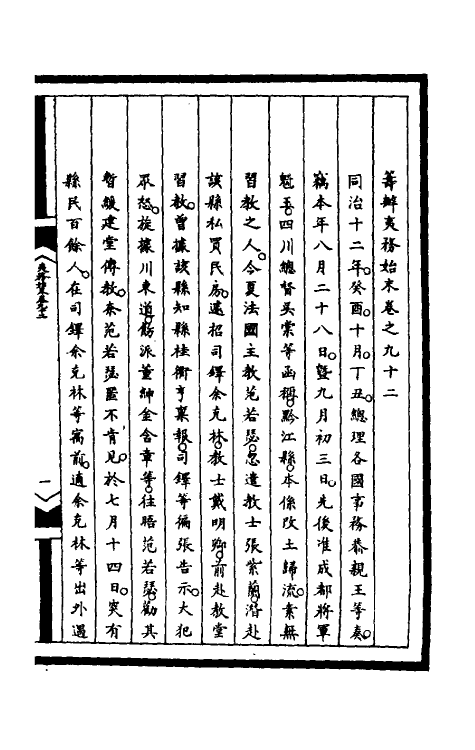 籌辦夷務始末卷之九十二
同治十二年。癸酉。十月。丁丑。總理各國事務恭親王等奏。
竊本年八月二十八日。暨九月初三日。先後准成都將軍
魁玉。四川總督吳棠等函稱。黔江縣。本係改土歸流。素無
習教之人。今夏法國主教范若瑟。忽遣教士張紫蘭。潛赴
該縣私買民房。還招司鐸余克林。教士戴明卿。前赴教堂
習教。曾據該縣知縣桂衢亨稟報。司鐸等徧張告示。大犯
眾怒。旋據川東道。飭派董紳金含章等。往晤范若瑟。勸其
暫緩建堂傳教。奈范若瑟置不肯見。於七月十四日。突有
縣民百餘人。在司鐸余克林等寓前。適余克林等出外遇
一